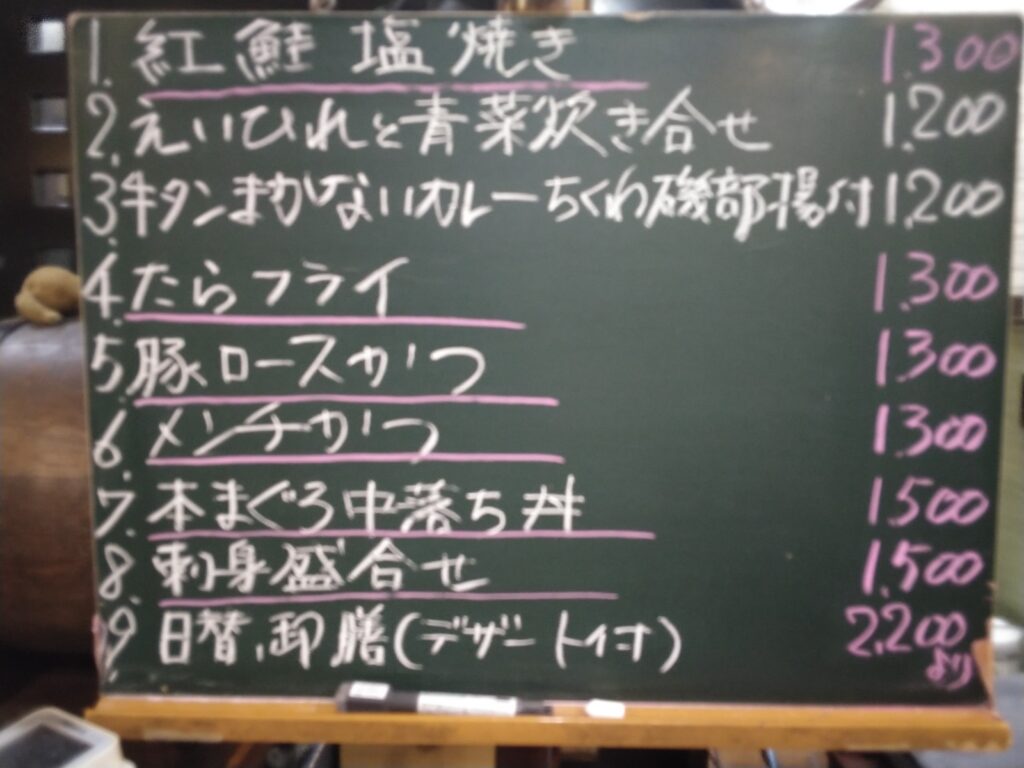 1. 紅鮭 塩焼き 1.300
2. えいひれと青菜炊き合せ 1.200
3. 牛タンまかないカレーちくわ磯部揚付 1.200
4. たらフライ 1.300
5. 豚ロースかつ 1.300
6. メンチかつ 1.300
7. 本まぐろ中落ち丼 1.500
8. 刺身盛合せ 1.500
9. 日替.御膳(デザート付) 2.200
より